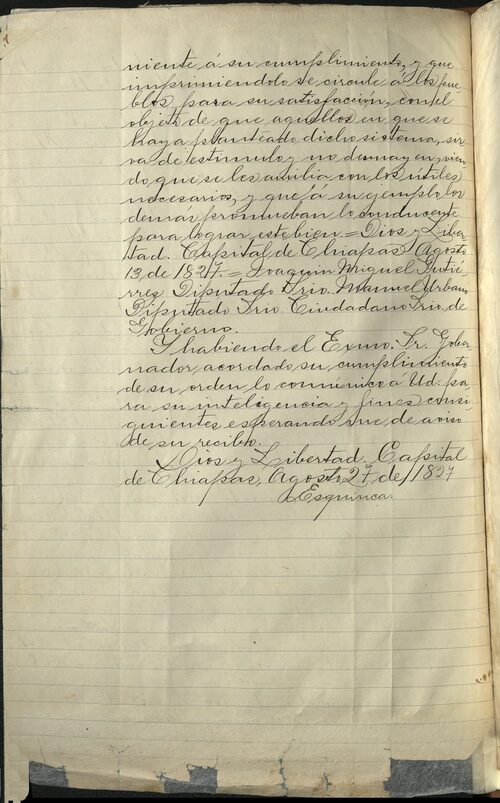 niente á su cumplimiento, y que
imprimiendolo se circule á los pue
blos, para su satisfacción, con el
objeto de que aquellos en que se
haya planteado dicho sistema, sir
va de estimulo y no demayen, vien
do que se les auxilia con los utiles
necesarios, y que á su ejemplo los
demas promueban lo conducente
para lograr este bien = Dios y Liber
tad. Capital de Chiapas Agosto
13 de 1827. = Joaquin Miguel Gutie-
rres Diputado Srio. Manuel Urbano
Diputado Srio. Ciudadano Srio. de
Gobierno.
Y habiendo el Exmo. Sr. Gober
nador, acordado su cumplimiento
de su orden lo comunico á Ud. pa
ra su inteligencia y fines consi
guientes esperando me de aviso
de su recibo.
Dios y Libertad. Capital
de Chiapas, Agosto 27 de 1827
Esquinca.